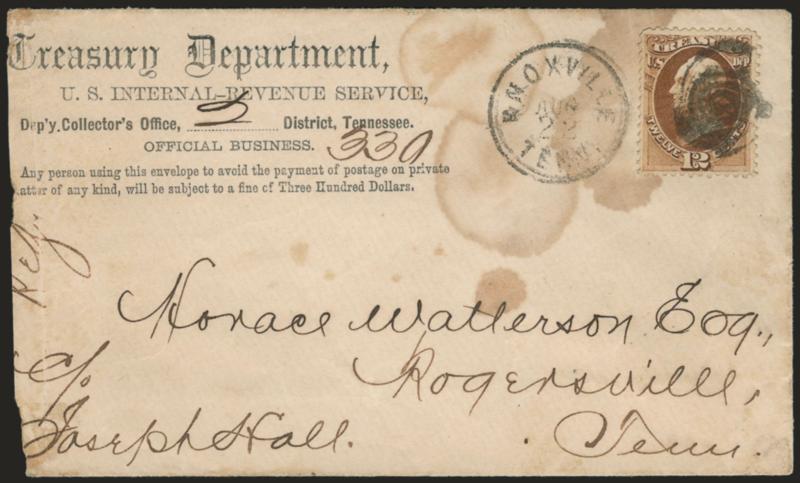 Treasury Department,
U. S. INTERNAL-REVENUE SERVICE,
Dep'y. Collector's Office, 2 District, Tennessee.
OFFICIAL BUSINESS. 330
Any person using this envelope to avoid the payment of postage on private
atter of any kind, will be subject to a fine of Three Hundred Dollars.
KNOXVILLE
AUG
22
TENN.
U.S. TREAS. DEP.
TWELVE 12 CENTS
Horace Watterson Esq.,
Rogersville,
Tenn.
c/o
Joseph Hall.